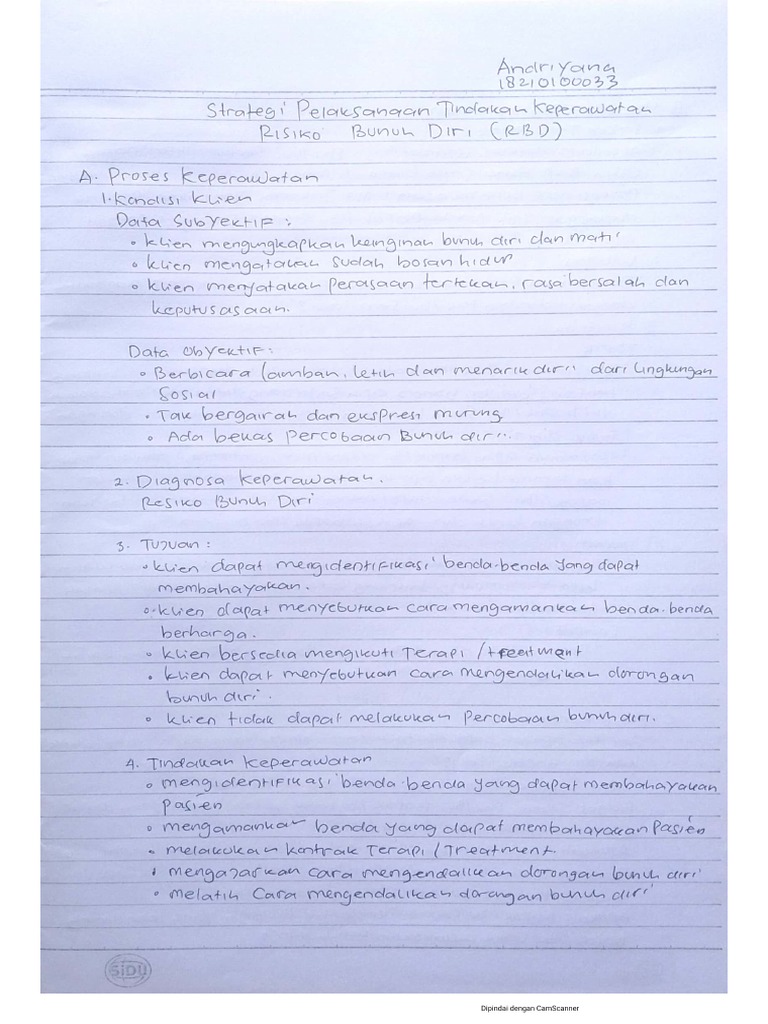 Andriyana
18210100033
Strategi Pelaksanaan Tindakan Keperawatan
Risiko Bunuh Diri (RBD)
A. Proses Keperawatan
1. Kondisi Klien
Data Subyektif :
• Klien mengungkapkan keinginan bunuh diri dan mati
• Klien mengatakan sudah bosan hidup
• Klien menyatakan perasaan tertekan, rasa bersalah dan
keputusasaan.
Data Obyektif :
• Berbicara lamban, letih dan menarik diri dari lingkungan
Sosial
• Tak bergairah dan ekspresi murung
• Ada bekas Percobaan Bunuh diri.
2. Diagnosa Keperawatan.
Resiko Bunuh Diri
3. Tujuan :
• Klien dapat mengidentifikasi benda-benda yang dapat
membahayakan.
• Klien dapat menyebutkan cara mengamankan benda-benda
berharga.
• Klien bersedia mengikuti Terapi /treatment
• Klien dapat menyebutkan cara mengendalikan dorongan
bunuh diri.
• Klien tidak dapat melakukan Percobaan bunuh diri.
4. Tindakan Keperawatan
• mengidentifikasi benda-benda yang dapat membahayakan
Pasien
• mengamankan benda yang dapat membahayakan Pasien
• melakukan kontrak Terapi / Treatment.
• mengajarkan cara mengendalikan dorongan bunuh diri
• melatih Cara mengendalikan dorongan bunuh diri
SiDU
Dipindai dengan CamScanner